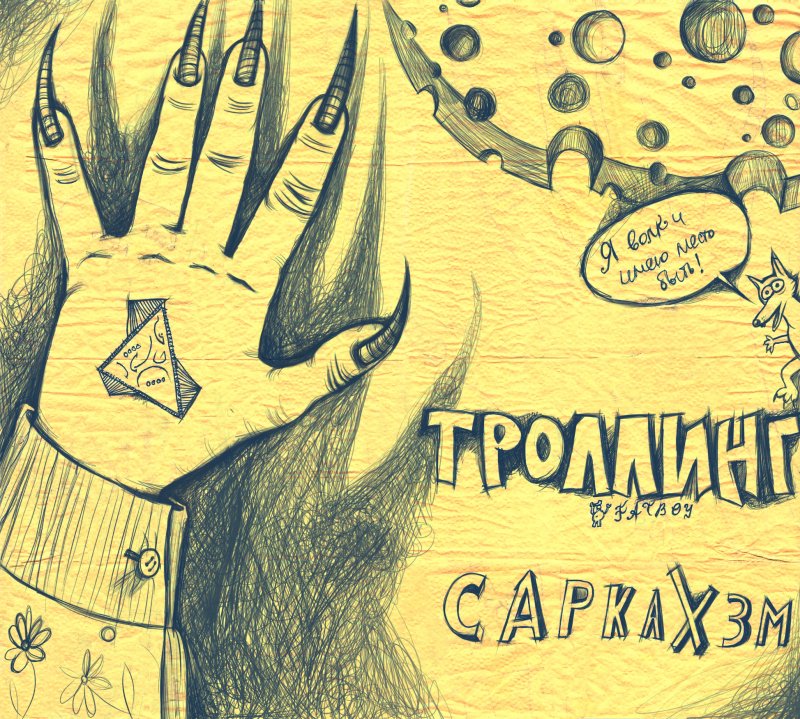 Я волк и
имею место
быть!
ТРОЛЛИНГ
FATBOY
САРКАХЗМ